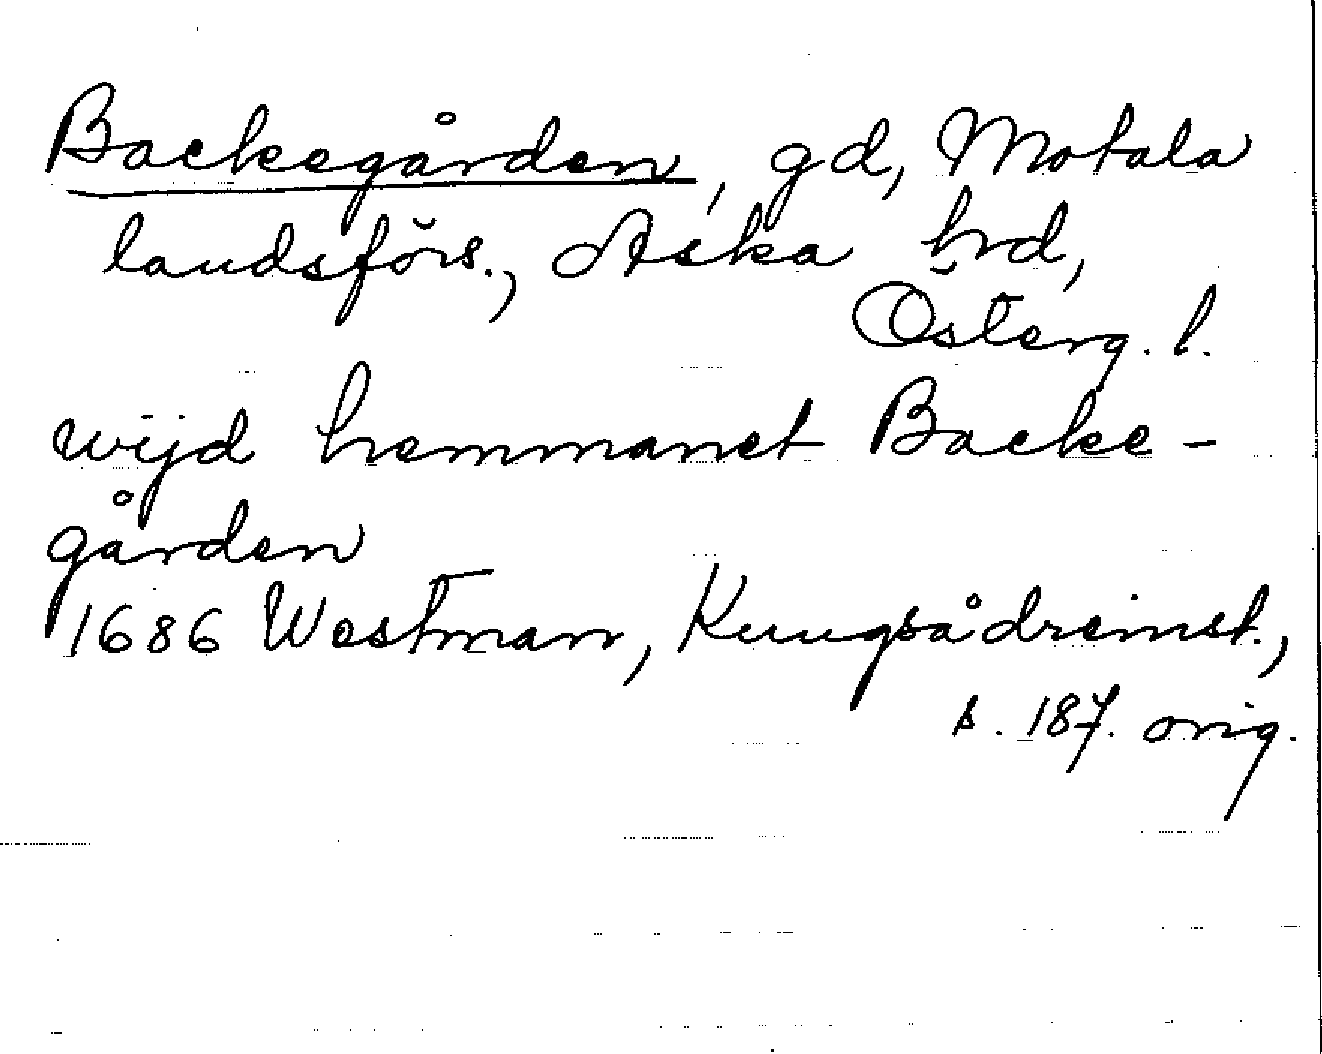 Backegården, gd, Motala
landsförs., Aska hrd,
Österg. l.
wijd hemmanet Backe-
gården
1686 Westman, Kungsådreinst.,
s. 187. orig.